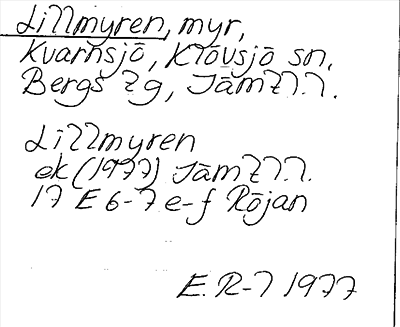 Lillmyren, myr,
Kvarnsjö, Klövsjö sn,
Bergs tg, Jämtl.l.
Lillmyren
ek (1977) Jämtl.l.
17 E 6-7 e-f Röjan
E.R-l 1977